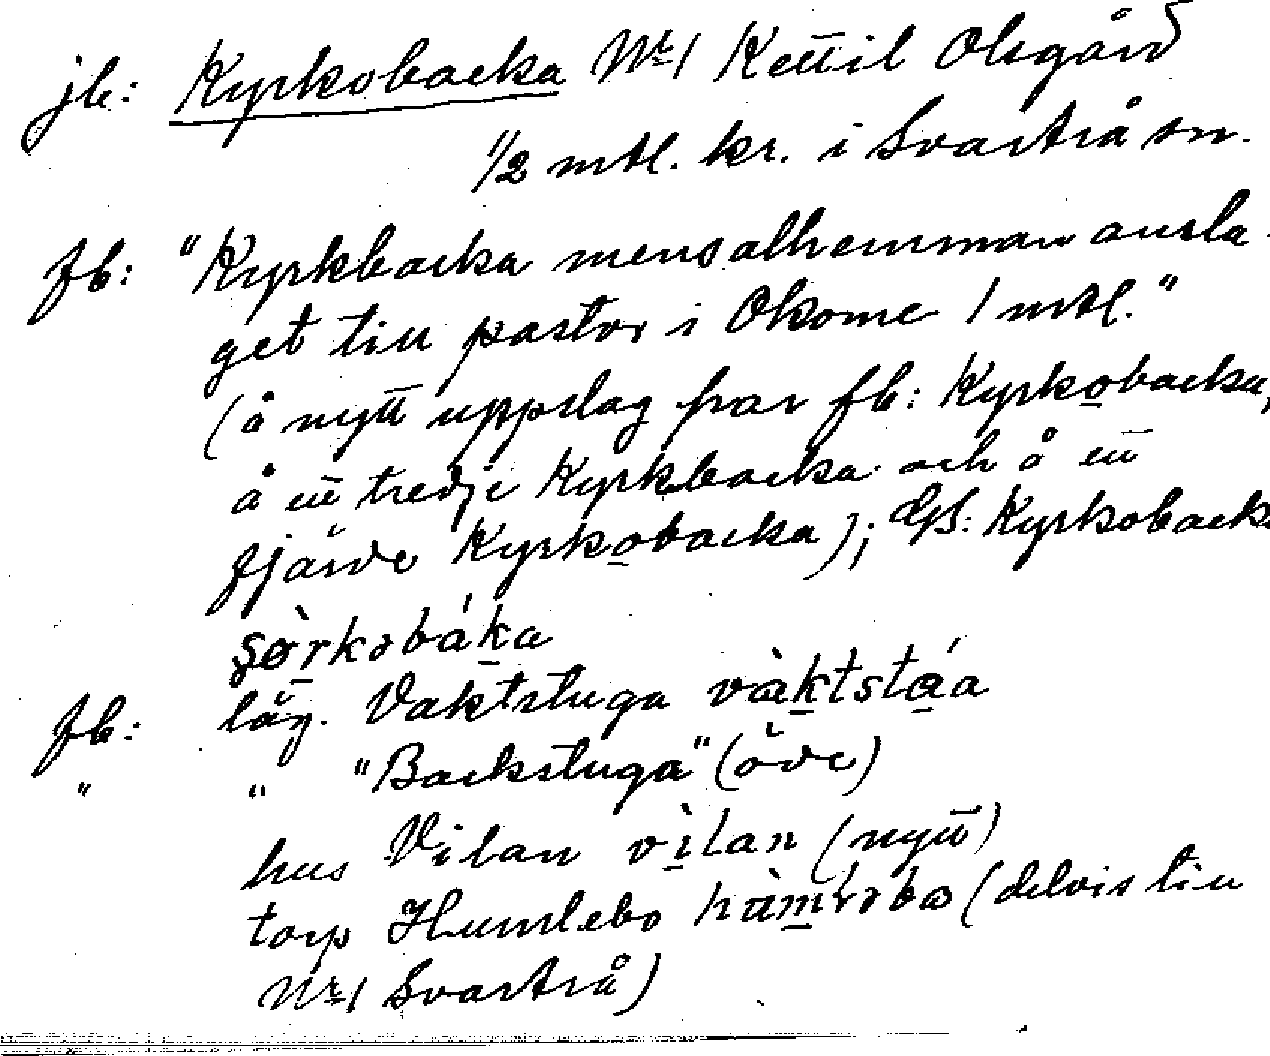 jb: Kyrkobacka Nr 1 Kettil Olsgård
1/2 mtl. kr. i Svartrå sn.
fb: "Kyrkbacka mensalhemman ansla-
get till pastor i Okome 1 mtl."
(å nytt uppslag har fb: Kyrkobacka,
å ett tredje Kyrkbacka och å ett
fjärde Kyrkobacka); GS: Kyrkobacka
ʂø̀rkobáka
fb: läg. Vaktstuga vàktstáa
" " "Backstuga" (öde)
hus Vilan vìlan (nytt)
torp Humlebo hùmləbo (delvis till
Nr 1 Svartrå)